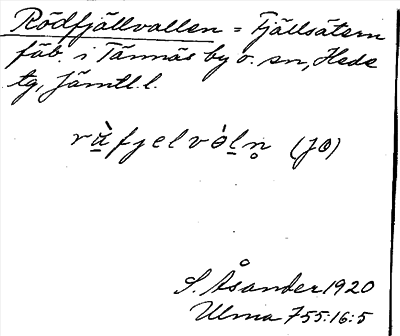 Rödfjällvallen = Fjällsätern
fäb. i Tännäs by o. sn, Hede
tg, Jämtl. l.
rὰ̲fjelvȯ̀l̲n̥ (JÖ)
S. Åsander 1920
Ulma 755:16:5